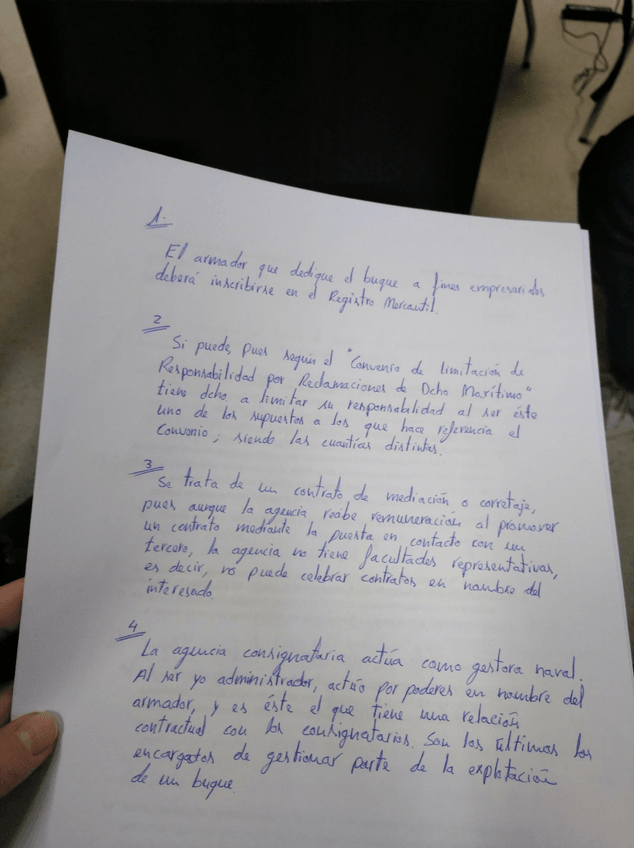 1.
El armador que dedique el buque a fines empresariales
deberá inscribirse en el Registro Mercantil.
2
Si puede, pues según el "Convenio de limitación de
Responsabilidad por Reclamaciones de Dcho Marítimo"
tiene dcho a limitar su responsabilidad al ser éste
uno de los supuestos a los que hace referencia el
Convenio; siendo las cuantías distintas.
3
Se trata de un contrato de mediación o corretaje,
pues aunque la agencia reciba remuneración al promover
un contrato mediante la puesta en contacto con un
tercero, la agencia no tiene facultades representativas,
es decir, no puede celebrar contratos en nombre del
interesado.
4
La agencia consignataria actúa como gestora naval.
Al ser yo administrador, actúo por poderes en nombre del
armador, y es éste el que tiene una relación
contractual con los consignatarios. Son los últimos los
encargados de gestionar parte de la explotación
de un buque.